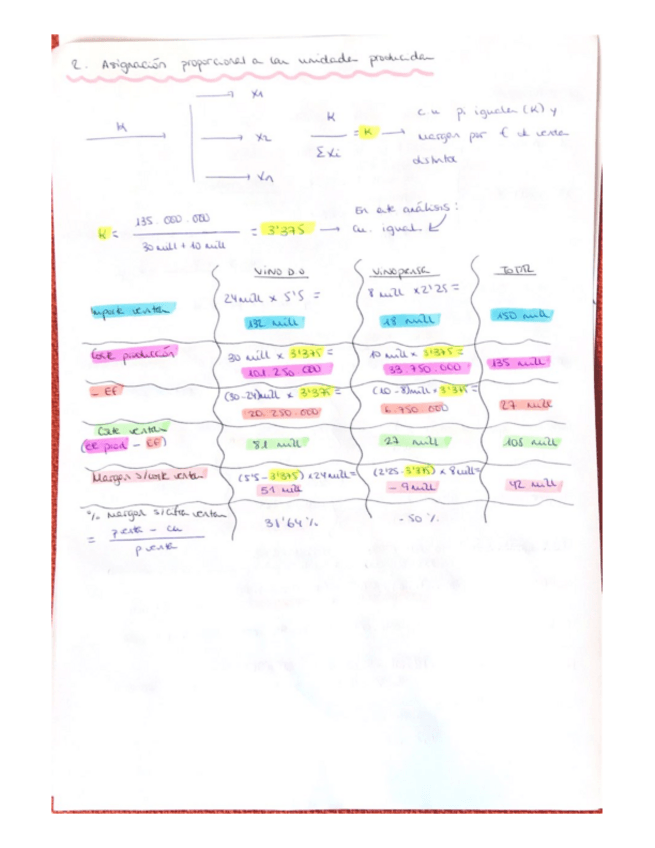 2. Asignación proporcional a las unidades producidas
K
X1
X2
Xn
K
Σxi
= K
c.u. pi iguales (K) y
margen por € de venta
distintos
K = 135.000.000
30 mill + 10 mill
= 3'375
En este análisis:
cu. igual. K
VINO D.O
VINOPERSA
TOTAL
Importe ventas
24 mill x 5'5 =
132 mill
8 mill x 2'25 =
18 mill
150 mill
Coste producción
30 mill x 3'375 =
101.250.000
10 mill x 3'375 =
33.750.000
135 mill
- EF
(30-24) mill x 3'375 =
20.250.000
(10-8) mill x 3'375 =
6.750.000
27 mill
Coste ventas
(CR prod - EF)
81 mill
27 mill
108 mill
Margen s/coste ventas
(5'5 - 3'375) x 24 mill =
51 mill
(2'25 - 3'375) x 8 mill =
- 9 mill
42 mill
% margen s/cifra ventas
= p.venta - cu
p venta
38'64%
- 50%